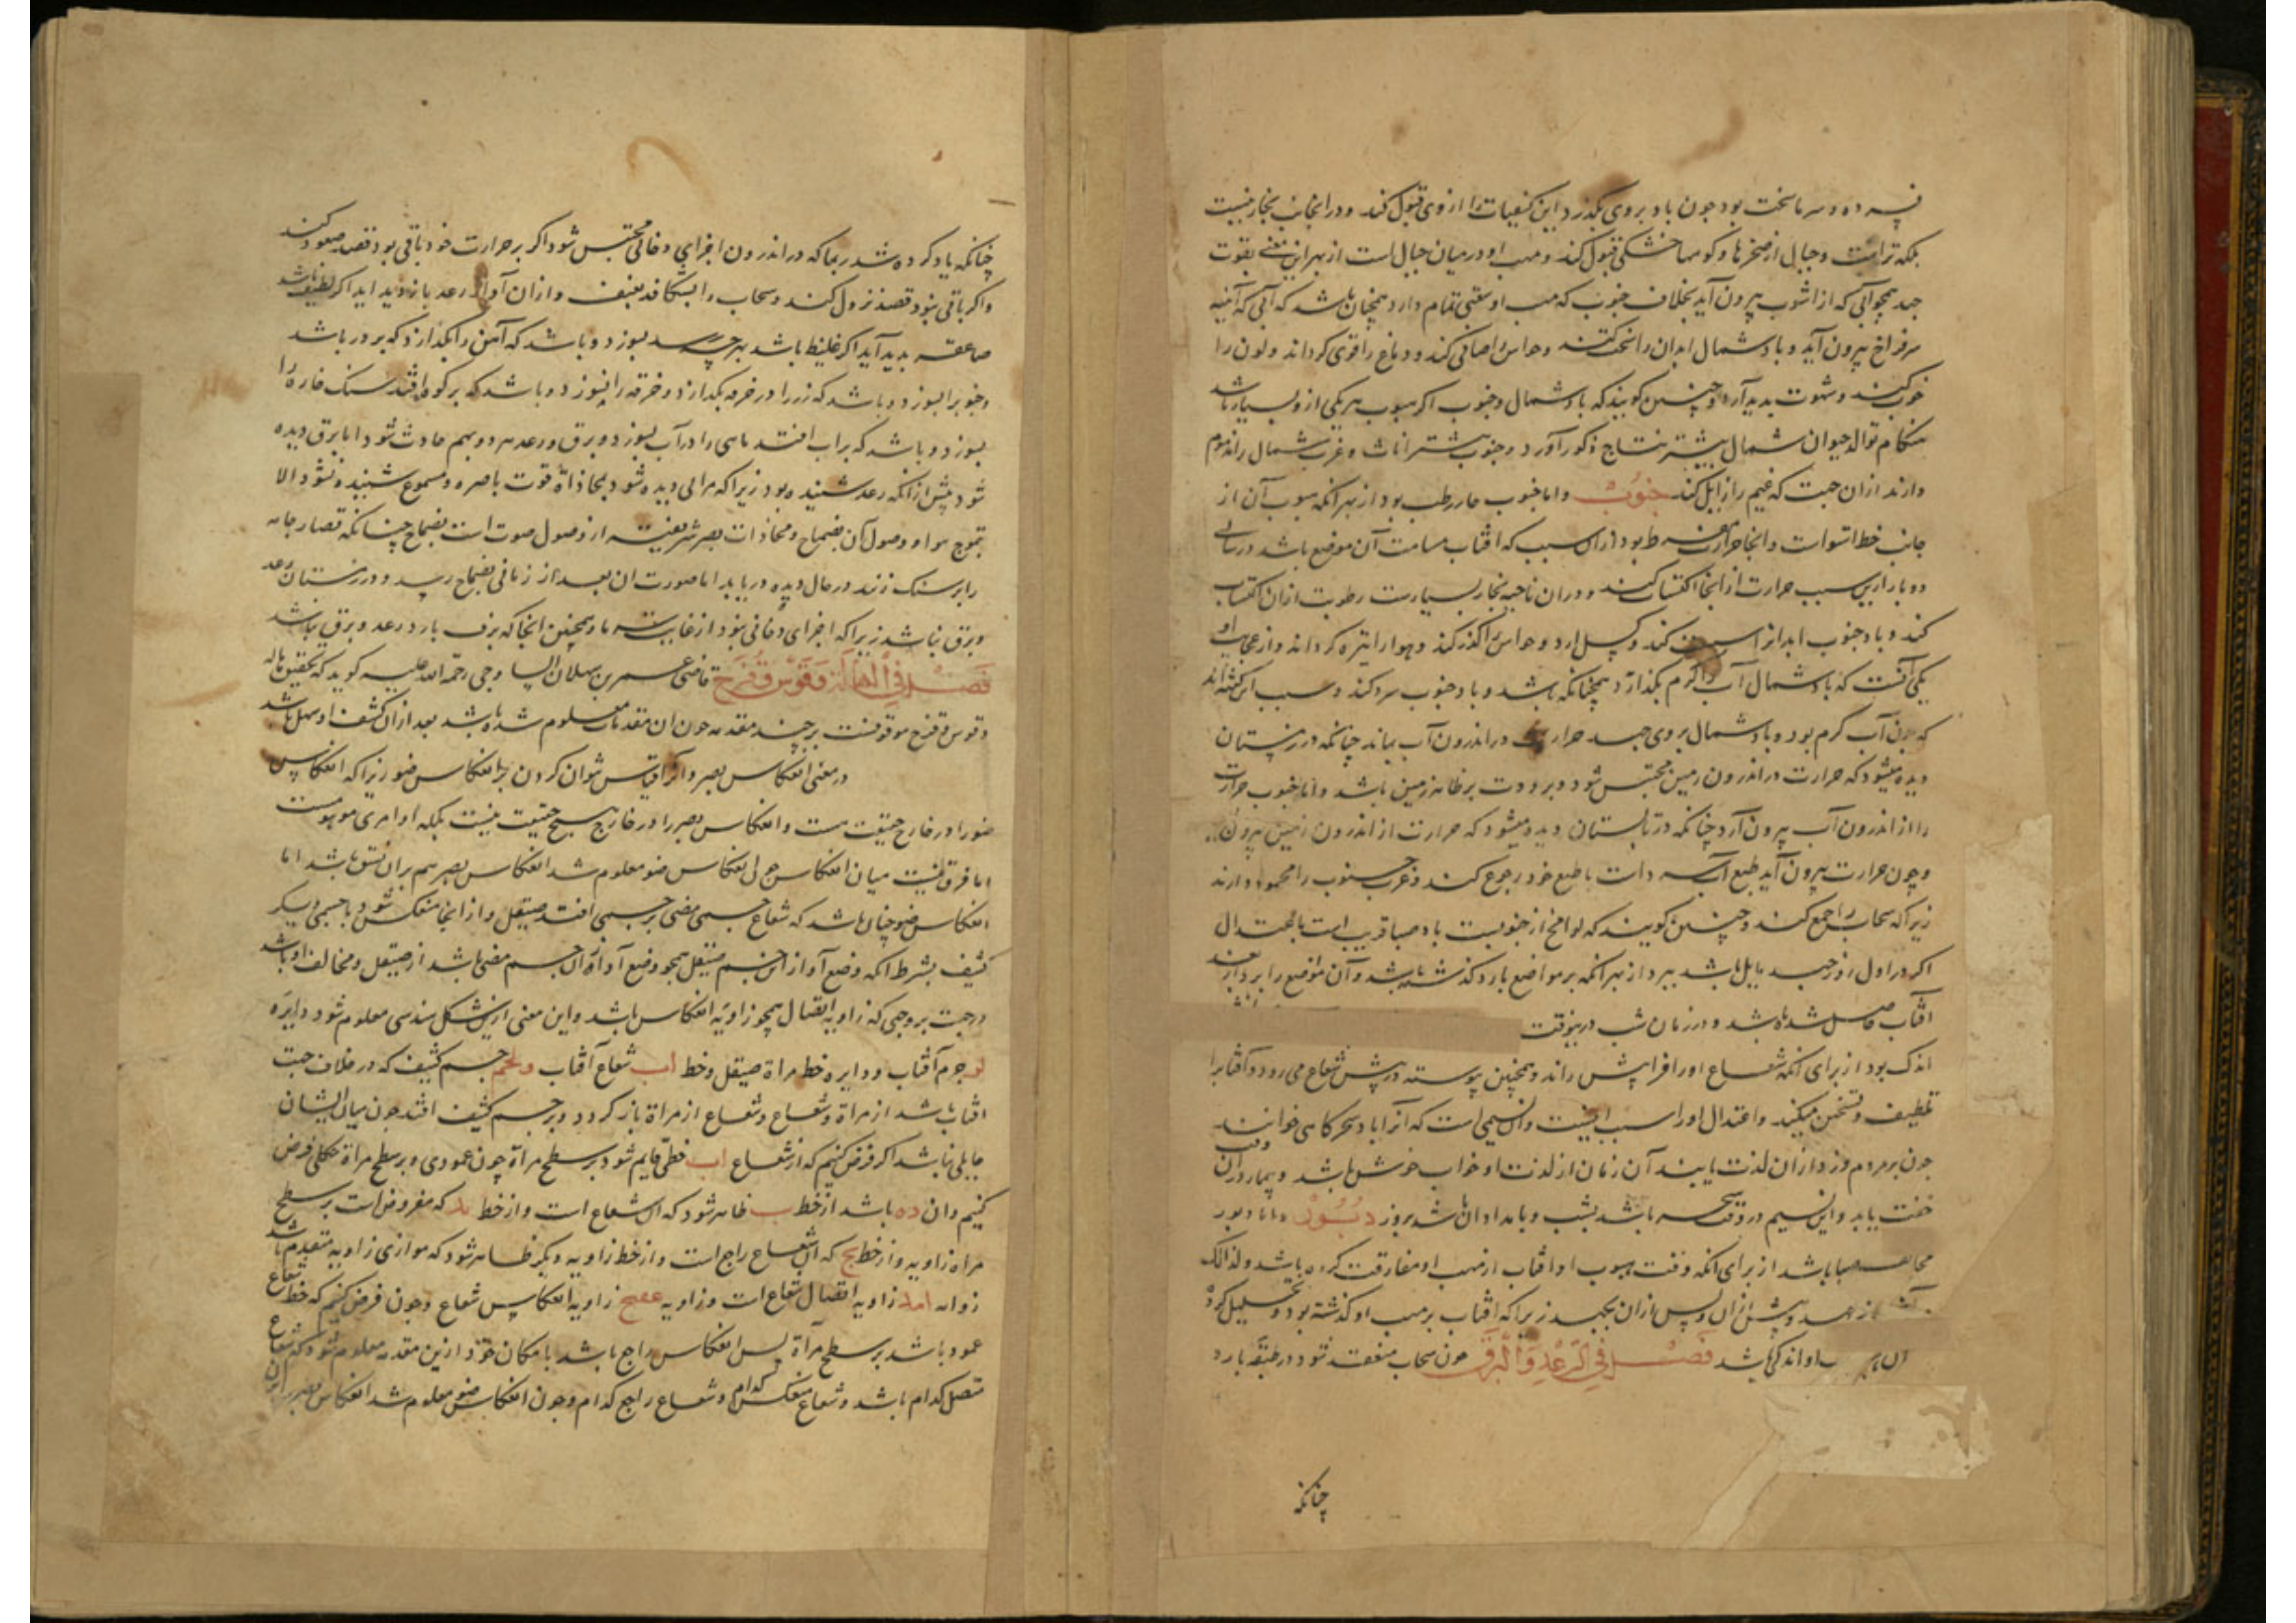 فسرده و سرما سخت بود چون باد بروی بگذرد این کیفیات را از وی قبول کند و در انجانب بخار نیست
بلکه تراست و جبال از صخرها و کوهها خشکی قبول کند و مهب او در میان جبال است از بهر این معنی بقوت
جهد همچو آبی که از انبوب بیرون آید بخلاف جنوب که مهب او سعتی تمام دارد همچنان باشد که آبی که آبنیه
سرفراخ بیرون آید و باد شمال ابدان را سخت کند و حواس را صافی کند و دماغ را قوی کرداند و لون را
خوب کند و شهوت بدید آرد و چنین کویند که باد شمال و جنوب اکر هبوب هر یکی ازو بسیار باشد
هنکام توالد حیوان شمال بیشتر نتاج ذکور آورد و جنوب بیشتر اناث و عرب شمال را مذموم
دارند ازان جهت که غیم را زایل کند جنوب و اما جنوب حار رطب بود از بهر انکه هبوب آن از
جانب خط استواست و انجا حرارت مفرط بود ازان سبب که افتاب مسامت آن موضع باشد در سالی
دو بار ازین سبب حرارت از انجا اکتساب کند و دران ناحیه بخار بسیارست رطوبت ازان اکتساب
کند و باد جنوب ابدانرا سست کند و کسل ارد و حواس را کدر کند و هوا را تیره کرداند و از عجایب او
یکی آنست که باد شمال آب را کرم بکذارد همچنانکه باشد و باد جنوب سرد کند و سبب این کفته‌اند
که چون آب کرم بود و باد شمال بروی جهد حرارت در اندرون آب بماند چنانکه در زمستان
دیده میشود که حرارت در اندرون زمین محتبس شود و برودت بر ظاهر زمین باشد و اما جنوب حرارت
را از اندرون آب بیرون آرد چنانکه در تابستان دیده میشود که حرارت از اندرون زمین بیرون
و چون حرارت بیرون آید طبع آب با طبع خود رجوع کند و عرب جنوب را محمود دارند
زیرا که سحاب را جمع کند و چنین کویند که لواقح از جنوبست باد صبا قریب است باعتدال
اکر در اول روز جهد مایل باشد ببرد از بهر انکه بر مواضع بارد کذشته باشد و آن مواضع را برد از بعد
افتاب حاصل شده باشد و در زمان شب درینوقت
اندک بود از برای آنکه شعاع او را فرا پیش راند و همچنین پیوسته در پیش شعاع می رود و آفتاب را
تلطیف و تسخین میکند و اعتدال او را سبب اینست و آن نسیمی است که آنرا باد سحرکاهی خوانند
چون بر مردم وزد ازان لذت یابند آن زمان از لذت او خواب خوش باشد و بیمار دران وقت
خفت یابد و این نسیم در وقت سحر باشد بشب و بامدادان باشد بروز دبور و اما دبور
مخالف صبا باشد از برای انکه وقت هبوب او افتاب از مهب او مفارقت کرده باشد و لذلک
جهد و پیش ازان و پس ازان نجهد زیرا که افتاب بر مهب او کذشته بود و تحلیل کرده
او اندکی باشد فصل فی الرعد و البرق چون سحاب منعقد شود در طبقه بارد
چنانکه
چنانکه یاد کرده شد ربما که در اندرون اجزای دخانی محتبس شود اکر بر حرارت خود باقی بود قصد صعود کند
و اکر باقی نبود قصد نزول کند و سحاب را بشکافد بعنف و ازان آواز رعد بازدید اید اکر لطیف باشد
صاعقه بدید آید اکر غلیظ باشد بهرچه رسد بسوزد و باشد که آهن را بکدازد که بر در باشد
و چوبرا بسوزد و باشد که زر را در خرقه بکدازد و خرقه را نسوزد و باشد که بر کوه افتد سنک خاره را
بسوزد و باشد که بر اب افتد ماهی را در آب بسوزد و برق و رعد هر دو بهم حادث شود اما برق دیده
شود پیش از انکه رعد شنیده بود زیرا که مرائی دیده شود بمحاذاة قوت باصره و مسموع شنیده نشود الا
بتموج هوا و وصول آن بصماخ و محاذات بصر سریعتر از وصول صوت است بصماخ چنانکه قصار جامه
را بر سنک زند در حال دیده دریابد اما صورت ان بعد از زمانی بصماخ رسد و در زمستان رعد
و برق نباشد زیرا که اجزای دخانی نبود از غایت سرما و همچنین انجا که برف بارد رعد و برق نباشد
فصل فی الهالة و قوس قزح قاضی عمر بن سهلان الساوجی رحمة الله علیه کوید که تحقیق هاله
و قوس قزح موقوفست بر چند مقدمه چون ان مقدمات معلوم شده باشد بعد ازان کشف او سهل باشد
در معنی انعکاس بصر و آنرا قیاس توان کردن بر انعکاس ضو زیرا که انعکاس
ضو را در خارج حقیقت هست و انعکاس بصر را در خارج هیچ حقیقت نیست بلکه او امری موهومست
اما فرق نیست میان انعکاس چون انعکاس ضو معلوم شد انعکاس بصر هم بران نسق باشد اما
انعکاس ضو چنان باشد که شعاع جسمی مضی بر جسمی افتد صیقل و از انجا منعکس شود با جسمی دیکر
کثیف بشرط انکه وضع آو از این جسم صیقل همچو وضع آو از ان جسم مضی باشد از صیقل و مخالف او باشد
در جهت بر وجهی که زاویه اتصال همچو زاویه انعکاس باشد و این معنی ازین شکل هندسی معلوم شود دایره
جرم آفتاب و دایره خط مراة صیقل و خط اب شعاع آفتاب جسم کثیف که در خلاف جهت
افتاب باشد از مراة و شعاع و شعاع از مراة باز کردد و بر جسم کثیف افتد چون میان ایشان
حایلی نباشد اکر فرض کنیم که از شعاع اب خطی قایم شود بر سطح مراة چون عمودی و بر سطح مراة خطی فرض
کنیم وان ده باشد از خط ب ظاهر شود که ان شعاع است و از خط که مفروض است بر سطح
مراة زاویه و از خط بج که ان شعاع راجع است و از خط زاویه دیکر ظاهر شود که موازی زاویه متقدم باشد
زاویه اتصال شعاع است و زاویه زاویه انعکاس شعاع و چون فرض کنیم که خط شعاع
عمود باشد بر سطح مرآة پس انعکاس راجع باشد با مکان خود ازین مقدمه معلوم شود که شعاع
متصل کدام باشد و شعاع منعکس کدام و شعاع راجع کدام و چون انعکاس ضو معلوم شد انعکاس بصر بر ان